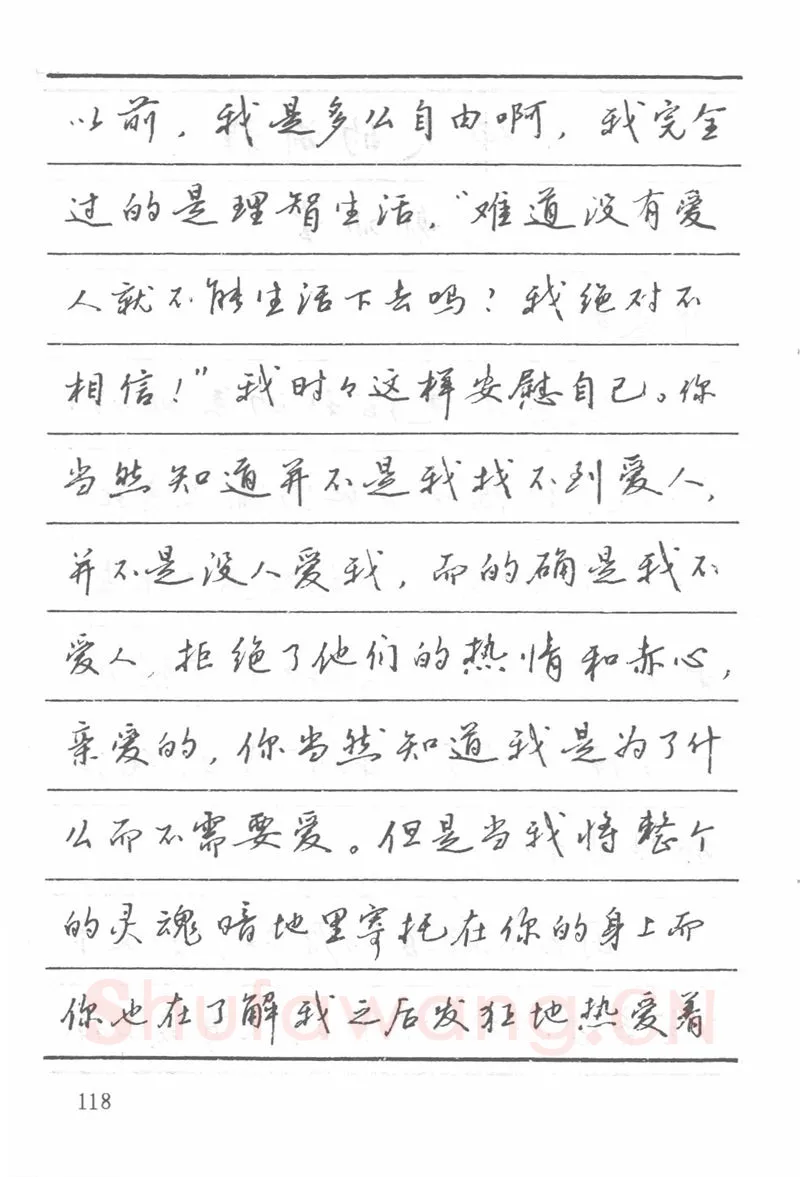 以前，我是多么自由啊，我完全
过的是理智生活，“难道没有爱
人就不能生活下去吗？我绝对不
相信！”我时々这样安慰自己。你
当然知道并不是我找不到爱人，
并不是没人爱我，而的确是我不
爱人，拒绝了他们的热情和赤心，
亲爱的，你当然知道我是为了什
么而不需要爱。但是当我将整个
的灵魂暗地里寄托在你的身上而
你也在了解我之后发狂地热爱着
Shufawang.CN
118